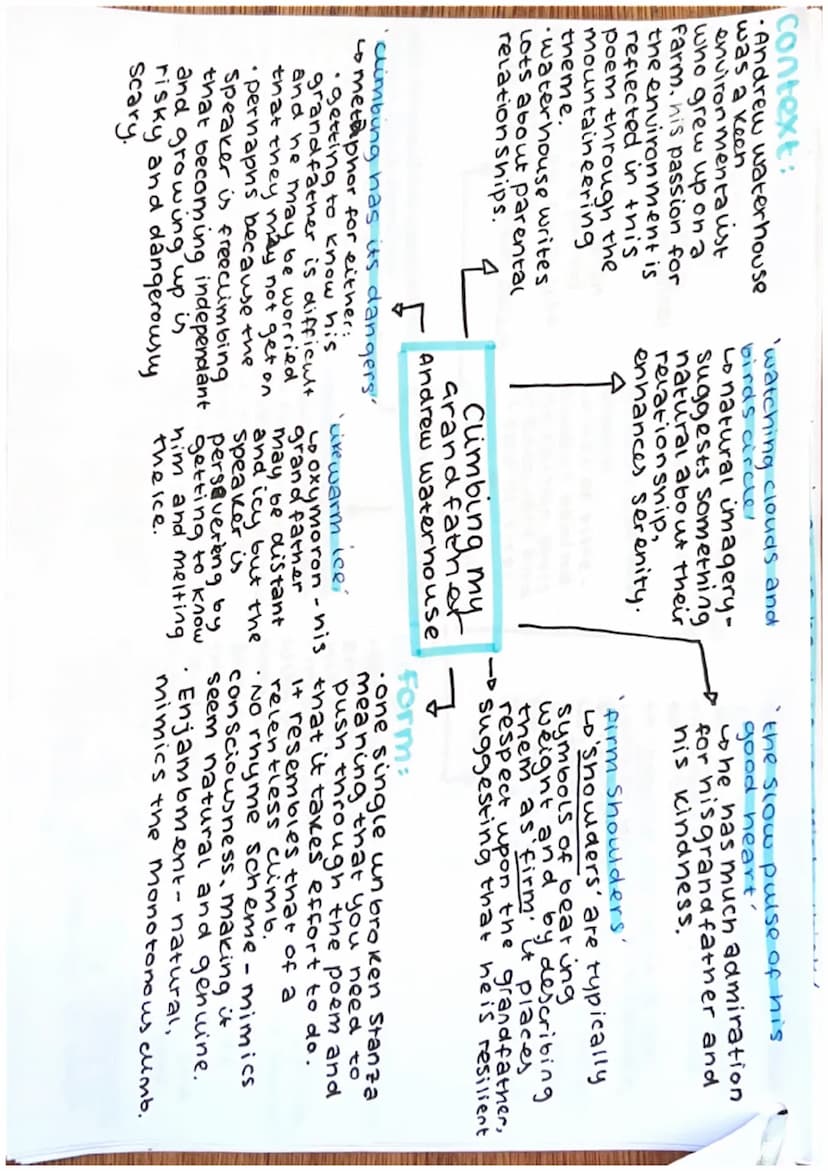 context:
· Andrew waterhouse
was a keen
environmentalist
who grew up on a
farm. his passion for
the environment is
reflected in this
poem through the
mountaineering
theme.
· waterhouse writes
lots about parental
relationships.
'watching clouds and
birds circle'
↳ natural imagery -
suggests something
natural about their
relationship,
enhances serenity.
'the slow pulse of his
good heart'
↳ he has much admiration
for his grandfather and
his kindness.
'firm shoulders'
↳ 'shoulders' are typically
symbols of bearing
weight and by describing
them as 'firm' it places
respect upon the grandfather,
suggesting that he is resilient
Climbing my
grandfather
Andrew waterhouse
'climbing has its dangers'
↳ metaphor for either:
· getting to know his
grandfather is difficult
and he may be worried
that they may not get on
· perhapns because the
speaker is freeclimbing
that becoming independant
and growing up is
risky and dangerously
scary.
'like warm ice'
↳ oxymoron - his
grandfather
may be distant
and icy but the
speaker is
persevereng by
getting to know
him and melting
the ice.
form:
· one single unbroken stanza
meaning that you need to
push through the poem and
that it takes effort to do.
It resembles that of a
relentless climb.
· No rhyme scheme - mimics
consciousness, making it
seem natural and genuine.
· Enjambment - natural,
mimics the monotonous climb.